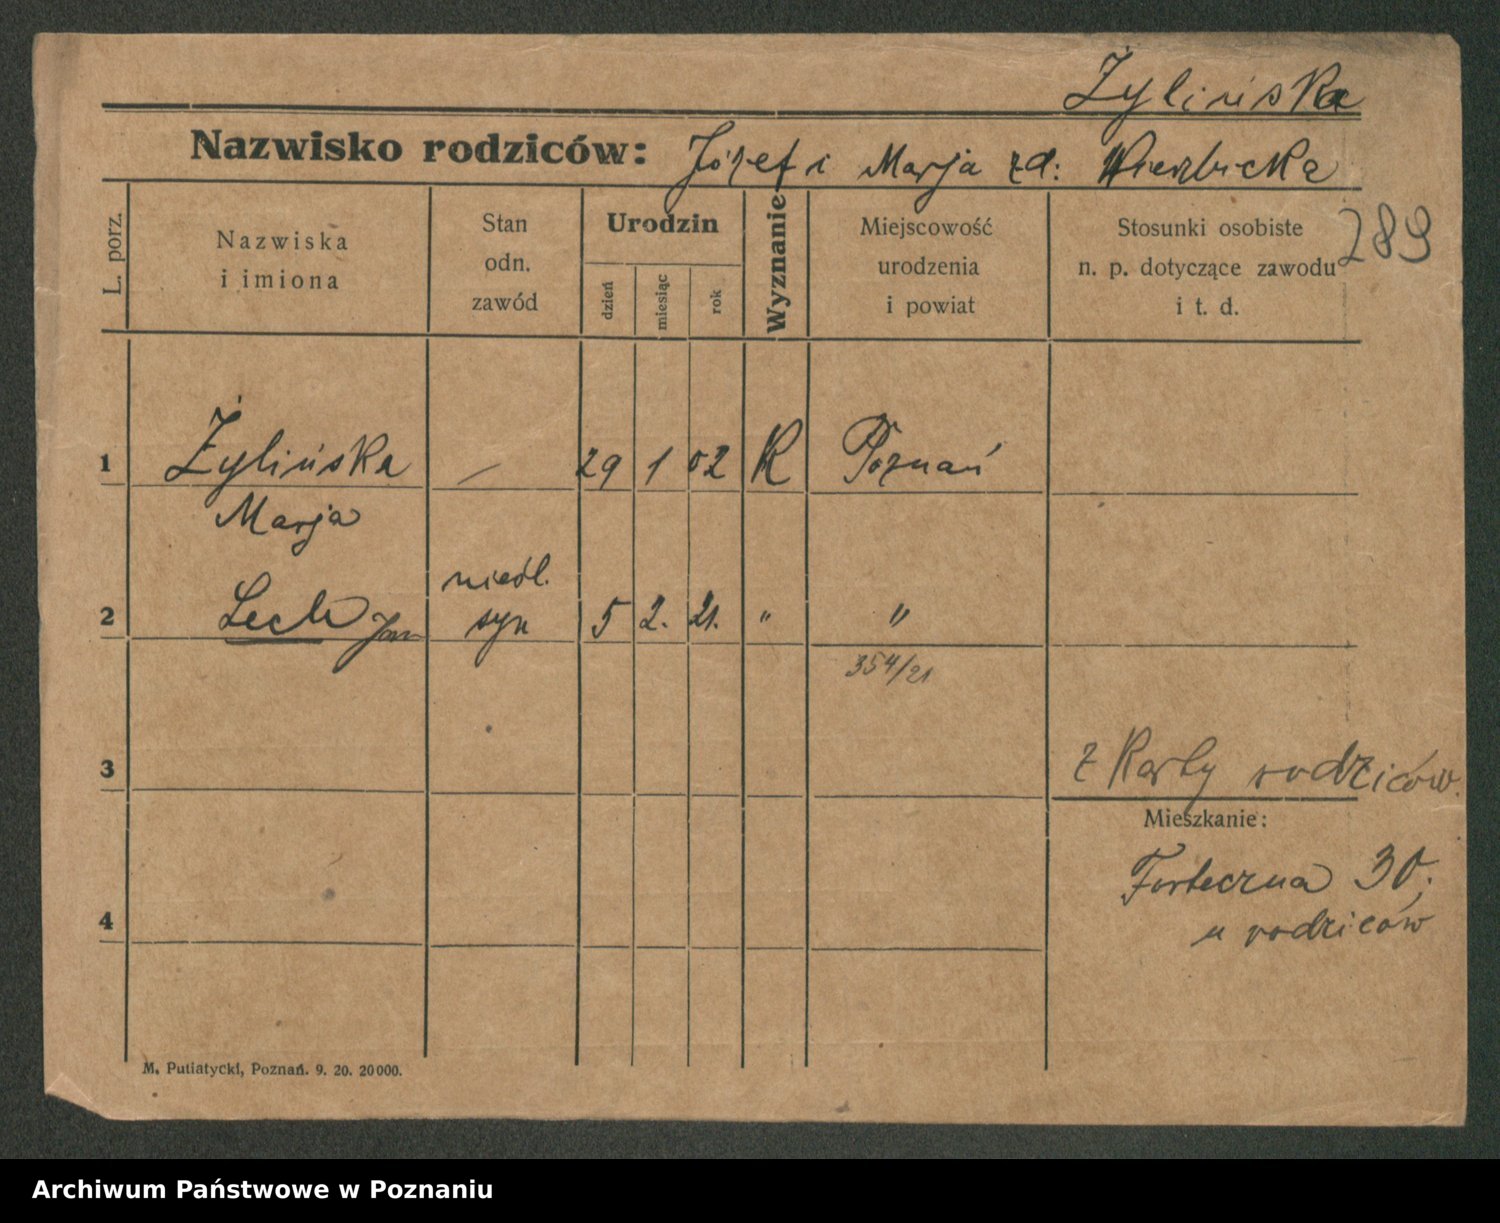 Żylińska
Nazwisko rodziców: Józef i Marja zd: Wierzbicka
289
L. porz.
Nazwiska
i imiona
Stan
odn.
zawód
Urodzin
dzień
miesiąc
rok
Wyznanie
Miejscowość
urodzenia
i powiat
Stosunki osobiste
n. p. dotyczące zawodu
i t. d.
1 Żylińska — 29 1 02 K Poznań
Marja
nieśl.
2 Lech Jan syn 5 2. 21. " "
354/21
3
z Karty rodziców.
Mieszkanie:
Forteczna 30,
u rodziców
4
M. Putiatycki, Poznań. 9. 20. 20000.
Archiwum Państwowe w Poznaniu